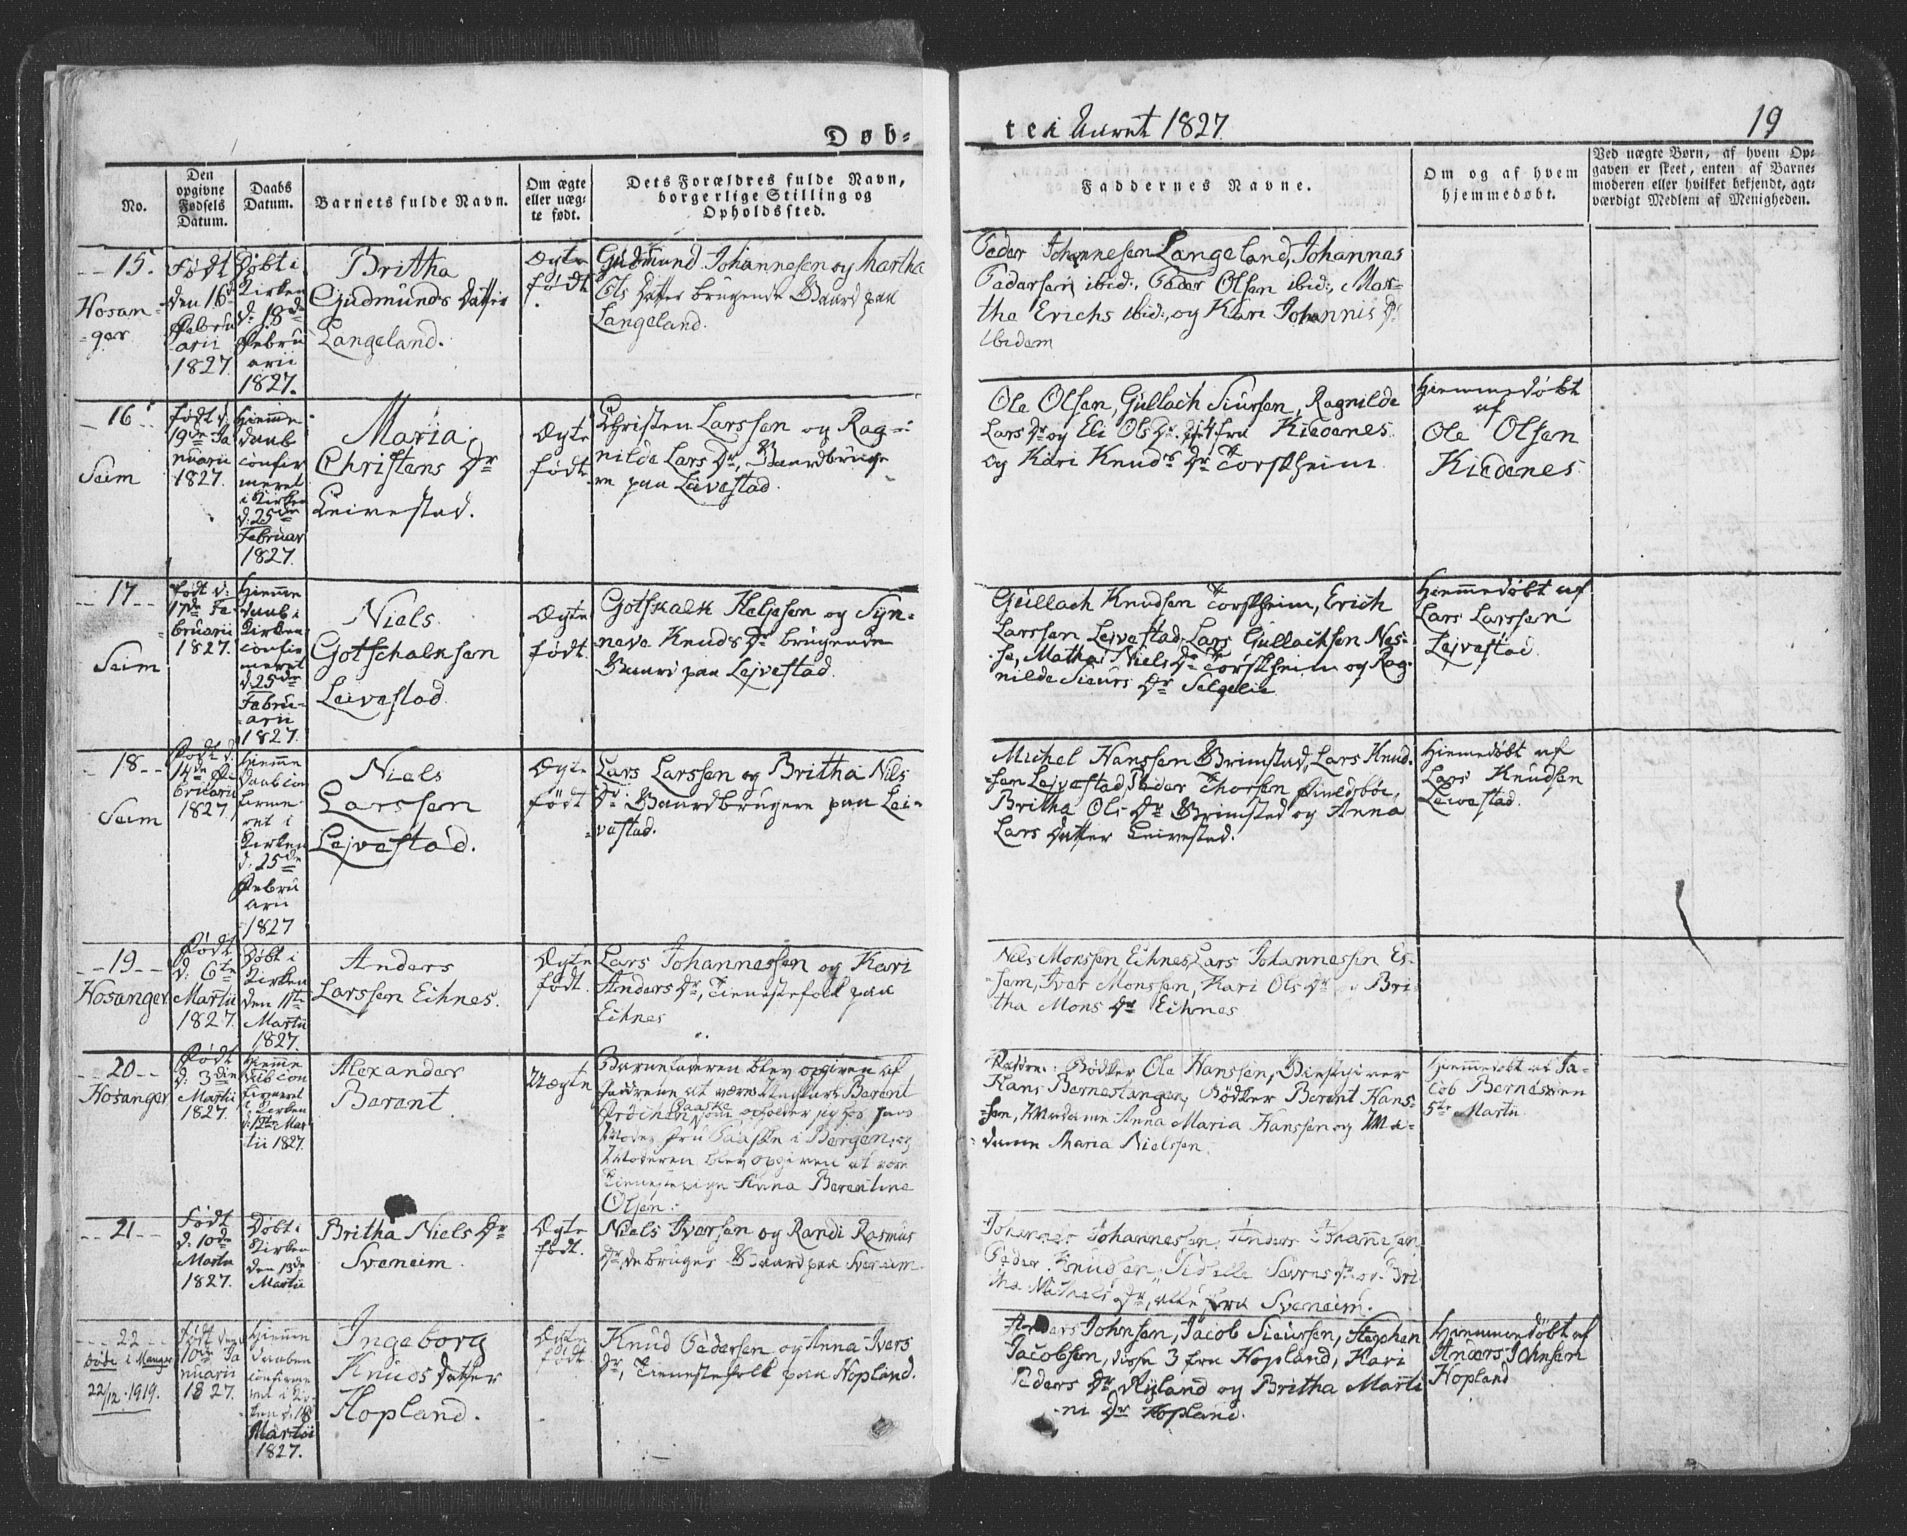 Døb=
te i Aaret 1827.
19
No.
Den opgivne Fødsels Datum.
Daabs Datum.
Barnets fulde Navn.
Om ægte eller uægte født.
Dets Forældres fulde Navn, borgerlige Stilling og Opholdssted.
Faddernes Navne.
Om og af hvem hjemmedøbt.
Ved uægte Børn, af hvem Op=
gaven er skeet, enten af Barne=
moderen eller hvilket bekjendt, agt=
værdigt Medlem af Menigheden.
15.
Hosan-
ger
Født
den 16de
Febru
arii
1827.
Døbt i
Kirken
d: 18de
Febru
arii
1827.
Britha
Gudmunds Datter
Langeland.
Ægte
født
Gudmund Johannesen og Martha
Ols Datter brugende Gaard paa
Langeland.
Peder Johannesen Langeland, Johannes
Pedersen ibid:, Peder Olsen ibid:, Mar-
tha Erichs ibid:, og Kari Johannis Dr
ibidem
16
Seim
født d.
19de Ja
nuarii
1827.
Hjemme
daab
confir
meret
i Kirken
d: 25de
Februar
1827.
Maria
Christens Dr
Leivestad.
Ægte
født
Christen Larssen og Rag-
nilde Lars Dr, Gaardbruge
re paa Leivestad.
Ole Olsen, Gullach Siursen, Ragnilde
Lars Dr og Eli Ols Dr fra Kiednes
og Kari Knuds Dr Torskheim
Hjemmedøbt
af
Ole Olsen
Kiednes
17
Seim
født d:
17de Fe
bruarii
1827.
Hjemme
daab i
Kirken
confir
meret
d: 25de
Febru-
arii
1827.
Niels
Gotschalksen
Leivestad
Ægte
født
Gotskalk Heljesen og Syn-
neve Knuds Dr brugende
Gaard paa Lejvestad.
Gullach Knudsen Torskheim, Erich
Larssen Lejvestad, Lars Gullachsen Nes-
se, Matha Niels Dr Torskheim og Rag-
nilde Sieurs Dr Selgelie
Hjemmedøbt af
Lars Larssen
Lejvestad.
18
Seim
Født d.
14de Fe
bruarii
1827.
Hjemme
daab con
firme-
ret i
Kirken
d. 25de
Febru
arii
1827
Niels
Larssen
Lejvestad.
Ægte
født
Lars Larssen og Britha Nils
Dr Gaardbrugere paa Lei-
vestad.
Michel Hanssen Brimstad, Lars Knud-
sen Lejvestad, Peder Thorsen
Britha Ols Dr Brimstad og Anna
Lars Datter Leivestad.
Hjemmedøbt af
Lars Knudsen
Leivestad.
19
Hosanger
Født
d: 6te
Martii
1827.
Døbt i
Kirken
den 11te
Martii
1827.
Anders
Larssen Eihnes.
Ægte
født.
Lars Johannessen og Kari
Anders Dr, Tienestefolk paa
Eihnes
Niels Monssen Eihnes, Lars Johannessen Es-
sem, Iver Monssen, Kari Ols Dr og Bri
tha Mons Dr Eihnes
20
Hosanger
Født
d: 3die
Martii
1827.
Hjemme
daab con
firmeret
i Kirken
Mar
tii 1827.
Alexander
Berent.
Uægte
Barnefaderen blev opgiven af
Berent
som opholder sig hos
Moder fru Paaske i Bergen, og
Moderen blev opgiven at være
Tienestepige Anna Berentine
Olsen.
Bødker Ole Hanssen,
Hans Bernestangen, Bødker Berent Hans-
sen, Madame Anna Maria Hanssen og Ma-
dame Maria Nielssen.
Hjemmedøbt af Ja-
cob
5te Martii
21
Født
d. 10de
Martii
1827.
Døbt i
Kirken
den 13de
Martii
Britha Niels Dr
Sveneim.
Ægte
født.
Niels Iversen og Randi Rasmus
Dr, de bruger Gaard paa Sveneim
Johannes Johannessen, Anders Johannesen,
Peder Knudsen, Bri
tha Dr, alle fra Sveneim.
22
Døde i Manger
22/12.1919.
født den
10de Ja
nuarii
1827.
Hjemme
daaben
confirme
ret i Kir
ken d: 18
Martii
1827.
Ingeborg
Knuds Datter
Hopland.
Ægte
født
Knud Pedersen og Anna Ivers
Dr, Tienestefolk paa Hopland.
Anders Johnsen, Jacob Sieurssen, Stephen
Jacobsen, disse 3 fra Hopland, Kari
Peders Dr Ryland og Britha Marti
ni Dr Hopland.
Hjemmedøbt af
Anders Johnsen
Hopland